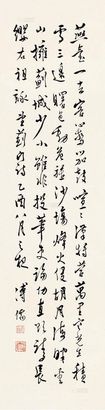 燕臺一去客心驚笳鼓喧喧漢將營萬里寒光生積
雪三邊曙色動危旌沙場烽火侵胡月海畔雲
山擁薊城少小雖非投筆吏論功欲請長
纓右祖詠望薊門詩乙酉八月之 溥儒